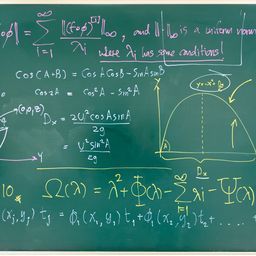 ∘φ‖ = Σ_{i=1}^{∞} ‖(f∘φ)^{(i)}‖ / λ_i ‖_∞ , and ‖·‖_∞ is a uniform norm
where λ_i has some conditions!
Cos(A+B) = CosA CosB - SinA SinB
Cos2A = Cos²A - Sin²A
D_x = 2U²CosASinA / 2g
= U²Sin²A / 2g
A
D_x
y
10. Ω(λ) = λ² + Φ(λ) - Σ_{i=1}^{∞} λi - Ψ(λ)
(x_j, y_j) t_j = φ_1(x_1, y_1) t_1 + φ_1(x_2, y_2) t_2 + . . . . +